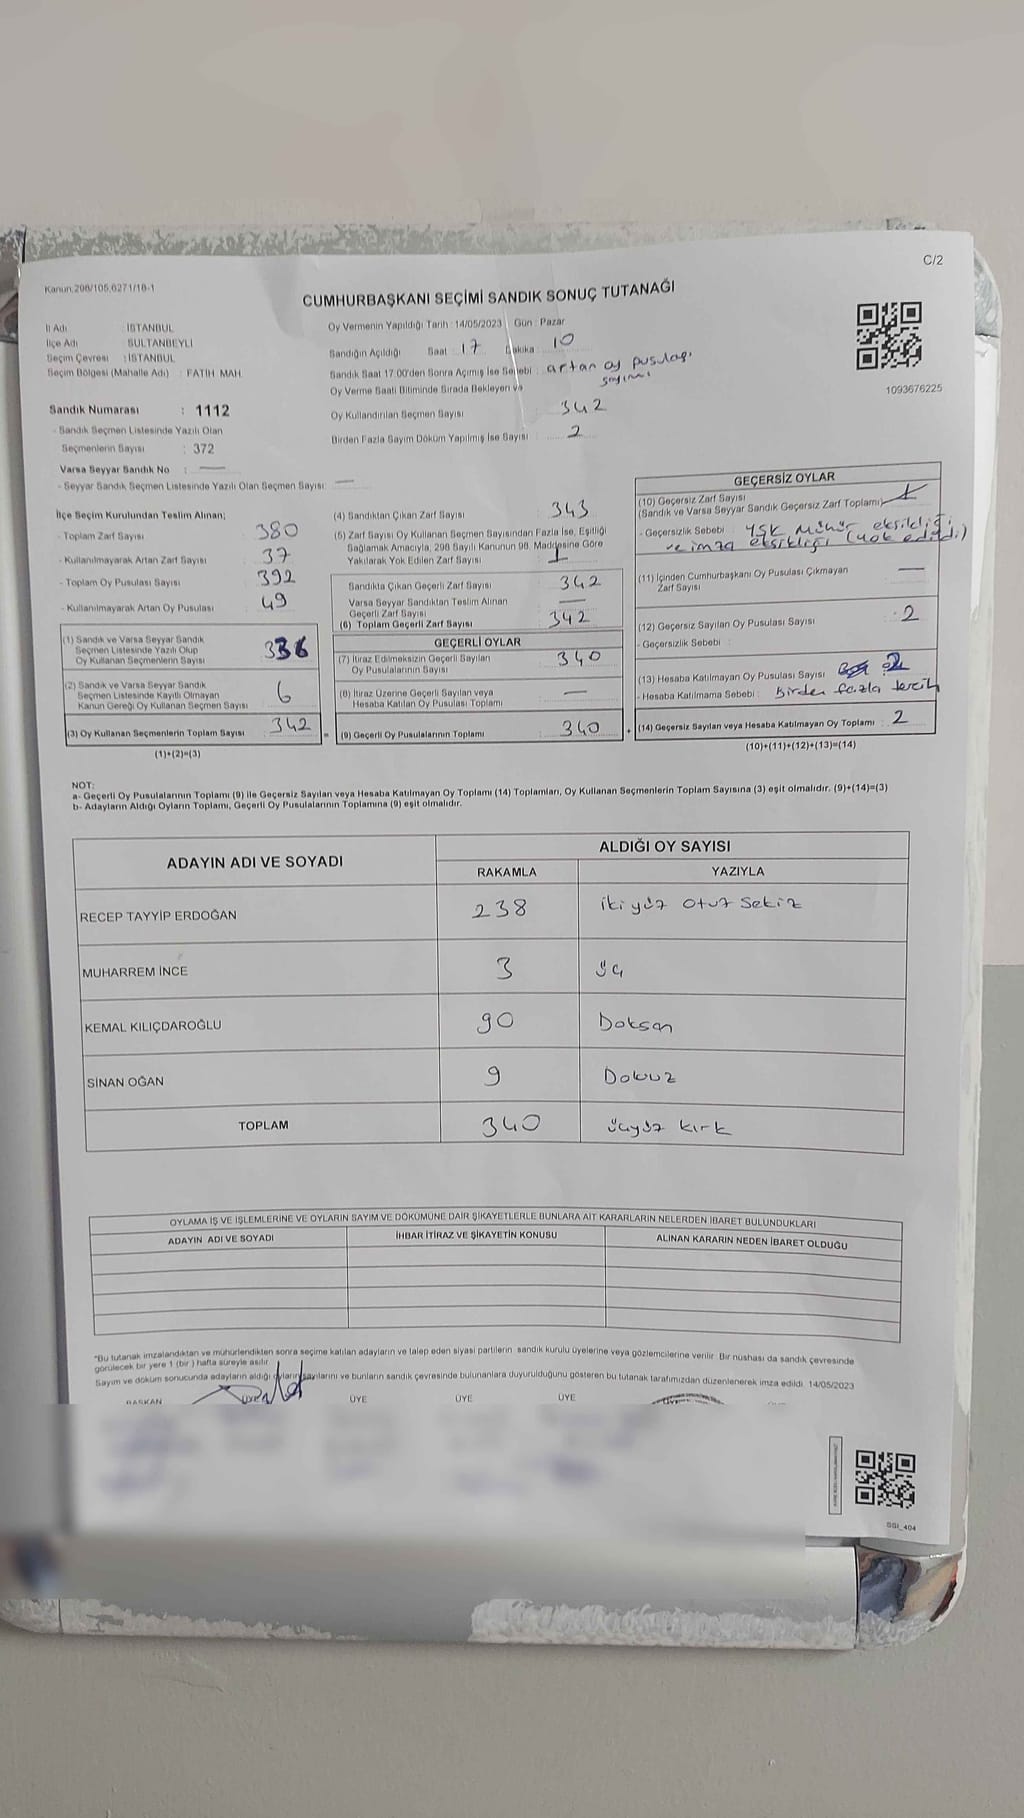 Kanun:298/105.6271/18-1
C/2
CUMHURBAŞKANI SEÇİMİ SANDIK SONUÇ TUTANAĞI
İl Adı : İSTANBUL
İlçe Adı : SULTANBEYLİ
Seçim Çevresi : İSTANBUL
Seçim Bölgesi (Mahalle Adı) : FATİH MAH.
Sandık Numarası : 1112
- Sandık Seçmen Listesinde Yazılı Olan
Seçmenlerin Sayısı : 372
Varsa Seyyar Sandık No : —
- Seyyar Sandık Seçmen Listesinde Yazılı Olan Seçmen Sayısı: —
Oy Vermenin Yapıldığı Tarih : 14/05/2023 Gün : Pazar
Sandığın Açıldığı Saat : 17 Dakika : 10
Sandık Saat 17.00'den Sonra Açılmış İse Sebebi : artan oy pusulası
sayımı
Oy Verme Saati Bitiminde Sırada Bekleyen ve
Oy Kullandırılan Seçmen Sayısı : 342
Birden Fazla Sayım Döküm Yapılmış İse Sayısı : 2
1093676225
İlçe Seçim Kurulundan Teslim Alınan;
- Toplam Zarf Sayısı : 380
- Kullanılmayarak Artan Zarf Sayısı : 37
- Toplam Oy Pusulası Sayısı : 392
- Kullanılmayarak Artan Oy Pusulası : 49
(1) Sandık ve Varsa Seyyar Sandık
Seçmen Listesinde Yazılı Olup
Oy Kullanan Seçmenlerin Sayısı 336
(2) Sandık ve Varsa Seyyar Sandık
Seçmen Listesinde Kayıtlı Olmayan
Kanun Gereği Oy Kullanan Seçmen Sayısı 6
(3) Oy Kullanan Seçmenlerin Toplam Sayısı 342
(1)+(2)=(3)
(4) Sandıktan Çıkan Zarf Sayısı : 343
(5) Zarf Sayısı Oy Kullanan Seçmen Sayısından Fazla İse, Eşitliği
Sağlamak Amacıyla, 298 Sayılı Kanunun 98. Maddesine Göre
Yakılarak Yok Edilen Zarf Sayısı : 1
Sandıkta Çıkan Geçerli Zarf Sayısı : 342
Varsa Seyyar Sandıktan Teslim Alınan
Geçerli Zarf Sayısı : —
(6) Toplam Geçerli Zarf Sayısı : 342
GEÇERLİ OYLAR
(7) İtiraz Edilmeksizin Geçerli Sayılan
Oy Pusulalarının Sayısı : 340
(8) İtiraz Üzerine Geçerli Sayılan veya
Hesaba Katılan Oy Pusulası Toplamı : —
(9) Geçerli Oy Pusulalarının Toplamı : 340
GEÇERSİZ OYLAR
(10) Geçersiz Zarf Sayısı
(Sandık ve Varsa Seyyar Sandık Geçersiz Zarf Toplamı)
- Geçersizlik Sebebi : YSK Mühür eksikliği
ve imza eksikliği (yok edildi)
(11) İçinden Cumhurbaşkanı Oy Pusulası Çıkmayan
Zarf Sayısı : —
(12) Geçersiz Sayılan Oy Pusulası Sayısı : 2
- Geçersizlik Sebebi :
(13) Hesaba Katılmayan Oy Pusulası Sayısı : 2
- Hesaba Katılmama Sebebi : Birden fazla tercih
(14) Geçersiz Sayılan veya Hesaba Katılmayan Oy Toplamı : 2
(10)+(11)+(12)+(13)=(14)
NOT:
a- Geçerli Oy Pusulalarının Toplamı (9) ile Geçersiz Sayılan veya Hesaba Katılmayan Oy Toplamı (14) Toplamları, Oy Kullanan Seçmenlerin Toplam Sayısına (3) eşit olmalıdır. (9)+(14)=(3)
b- Adayların Aldığı Oyların Toplamı, Geçerli Oy Pusulalarının Toplamına (9) eşit olmalıdır.
ADAYIN ADI VE SOYADI
ALDIĞI OY SAYISI
RAKAMLA YAZIYLA
RECEP TAYYİP ERDOĞAN 238 ikiyüz otuz sekiz
MUHARREM İNCE 3 üç
KEMAL KILIÇDAROĞLU 90 Doksan
SİNAN OĞAN 9 Dokuz
TOPLAM 340 üçyüz kırk
OYLAMA İŞ VE İŞLEMLERİNE VE OYLARIN SAYIM VE DÖKÜMÜNE DAİR ŞİKAYETLERLE BUNLARA AİT KARARLARIN NELERDEN İBARET BULUNDUKLARI
ADAYIN ADI VE SOYADI İHBAR İTİRAZ VE ŞİKAYETİN KONUSU ALINAN KARARIN NEDEN İBARET OLDUĞU
"Bu tutanak imzalandıktan ve mühürlendikten sonra seçime katılan adayların ve talep eden siyasi partilerin sandık kurulu üyelerine veya gözlemcilerine verilir. Bir nüshası da sandık çevresinde
görülecek bir yere 1 (bir) hafta süreyle asılır.
Sayım ve döküm sonucunda adayların aldığı oyların sayılarını ve bunların sandık çevresinde bulunanlara duyurulduğunu gösteren bu tutanak tarafımızdan düzenlenerek imza edildi. 14/05/2023
BAŞKAN ÜYE ÜYE ÜYE ÜYE
SSI_404